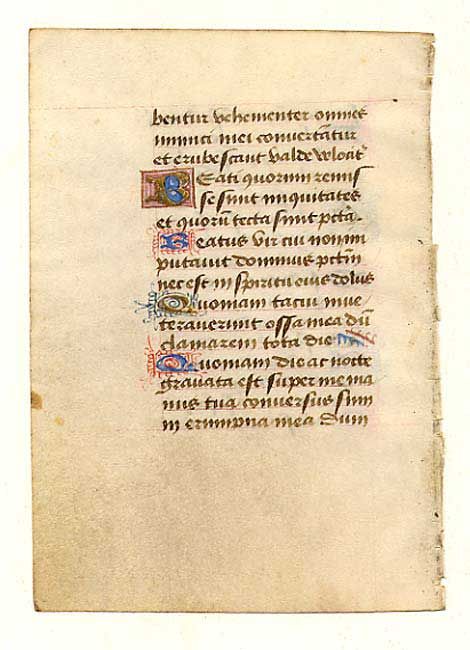 bentur vehementer omnes
inimici mei convertātur
et erubescant valde velocit̄
Beati quorum remis
se sunt iniquitates
et quorū tecta sunt pctā.
Beatus vir cui non im
putavit dominus pctm
nec est in spiritu eius dolus
Quoniam tacui inve
teraverunt ossa mea dū
clamarem tota die
Quoniam die ac nocte
gravata est super me ma
nus tua conversus sum
in erumpna mea dum